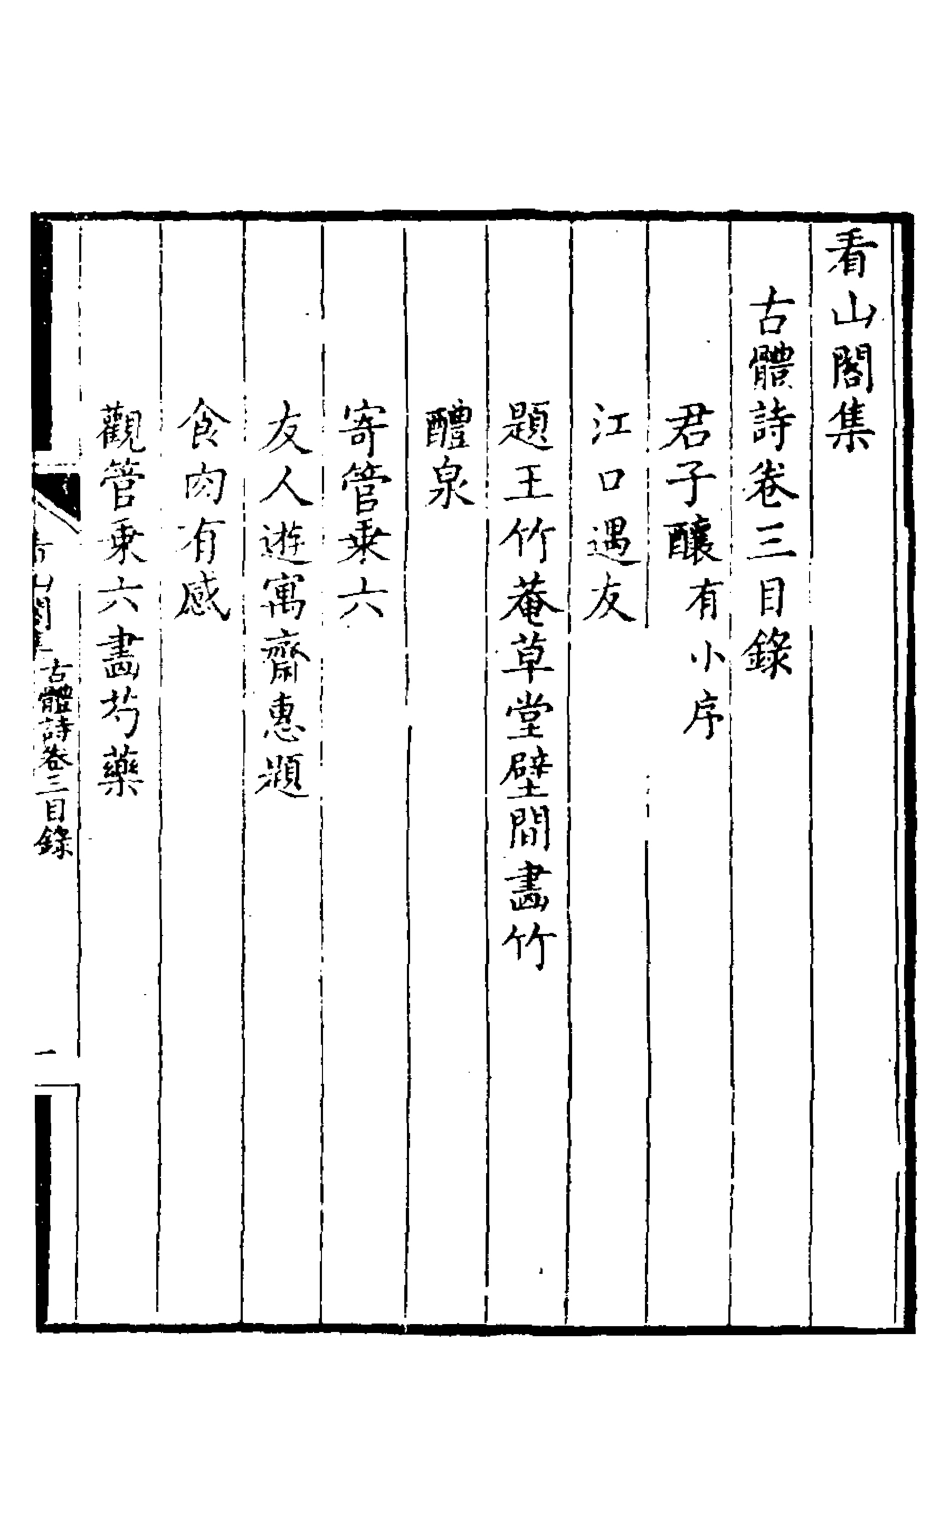 看山閣集
古體詩卷三目錄
君子釀有小序
江口遇友
題王竹菴草堂壁間畵竹
醴泉
寄管乗六
友人遊寓齋惠題
食肉有感
觀管乗六畵芍藥
看山閣集
古體詩卷三目錄
一